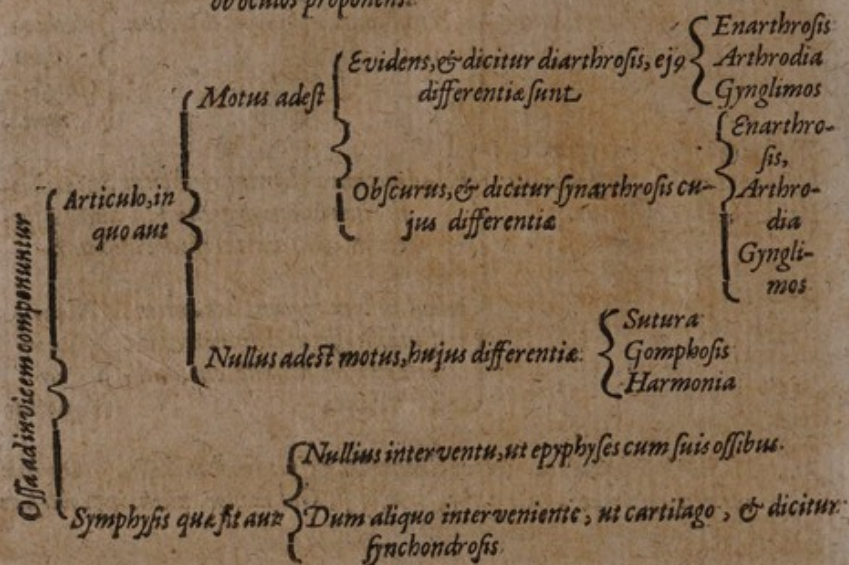 ob oculos proponens.
Ossa ad invicem componuntur
Articulo, in
quo aut
Motus adest
Evidens, & dicitur diarthrosis, ej9
differentiæ sunt
Enarthrosis
Arthrodia
Gynglimos
Obscurus, & dicitur synarthrosis cu-
jus differentiæ
Enarthro-
sis,
Arthro-
dia
Gyngli-
mos
Nullus adest motus, hujus differentiæ
Sutura
Gomphosis
Harmonia
Symphysis quæ fit aut
Nullius interventu, ut epyphyses cum suis ossibus.
Dum aliquo interveniente, ut cartilago, & dicitur
synchondrosis.